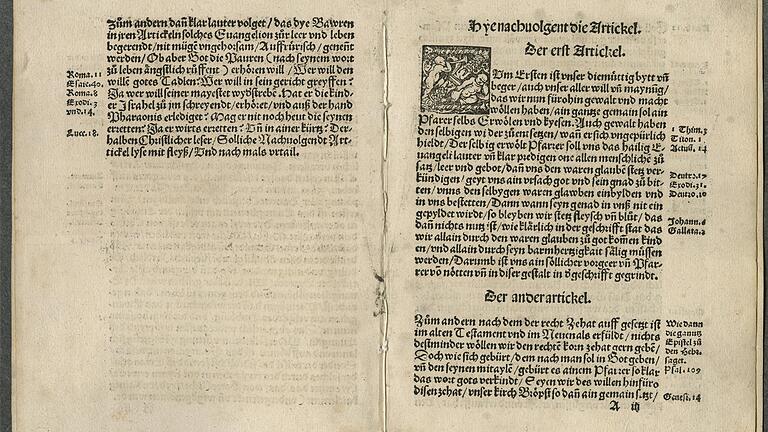 Zům andern dañ klar lauter volget / das dye Bawren
in jren Artickeln solches Euangelion zůr leer vnd leben
begerendt / nit müge vngehorsam / Auffrürisch / genent
werden / Ob aber Got die Pauren (nach seynem wort
zů leben ängstlich rüffent) erhören will / Wer will den
Roma. 11
willē gotes Tadlen? Wer will in sein gericht greyffen?
Esaie. 40.
Ja wer will seiner mayestet wydstrebē? Hat er die kind-
Roma. 8
er Israhel zů jm schreyendt / erhöret / vnd auß der hand
Exodi. 3
vnd. 14.
Pharaonis erlediget? Mag er nit noch heut die seynen
erretten? Ja er wirts erretten? Vñ in ainer kürtz? Der-
Luce. 18.
halben Christlicher leser / Solliche Nachuolgendt Art-
tickel lyß mit fleyß / Vnd nach mals vrtail.
Hye nachuolgent die Artickel.
Der erst Artickel.
Vm Ersten ist vnser diemüttig bytt vñ
beger / auch vnser aller will vñ maynũg /
das wir nun fürohin gewalt vnd macht
wöllen haben / ain gantze gemain sol ain
Pfarer selbs Erwölen vnd kyesen. Auch gewalt haben
den selbigen wider zůentsetzen / wañ er sich vngepürlich
1 Thim. 3
hieldt / Der selbig erwölt Pfarrer soll vns das hailig E-
Titon. 1
uangeli lauter vñ klar predigen one allen menschlichē zů
Actuũ. 14
satz / leer vnd gebot / dañ vns den waren glaubē stetz ver-
kündigen / geyt vns ain vrsach got vnd sein gnad zů bit-
Deutro. 17
ten / vnns den selbygen waren glawben einbylden vnd
Exodi. 31.
in vns bestetten / Dann wann seyn genad in vnß nit ein
Deutro. 10
gepyldet wirdt / so bleyben wir stetz fleysch vñ blůt / das
dañ nichts nutz ist / wie klärlich in der geschrifft stat das
Johann. 6
wir allain durch den waren glauben zů got kom̃en kind
Gallata. 2
en / vnd allain durch seyn barmhertzigkait sälig müssen
werden / Darumb ist vns ain söllicher vorgeer vñ Pfar-
rer vō nötten vñ in diser gestalt in d geschrifft gegrindt.
Der ander artickel.
Zům andern nach dem der recht Zehat auff gesetzt ist
Wie dann
im alten Testament vnd im Neuen als erfüldt / nichts
die gantz
destminder wöllen wir den rechtē korn zehat gern gebē /
Epistel zů
Doch wie sich gebürt / dem nach man sol in Got geben /
den Hebr.
saget.
vñ den seynen mitaylē / gebürt es ainem Pfarrer so klar
Psal. 109
das wort gots verkindt / Seyen wir des willen hinfüro
disen zehat / vnser kirch Bröpst so dañ ain gemain setzt /
Genesi. 14
A iij